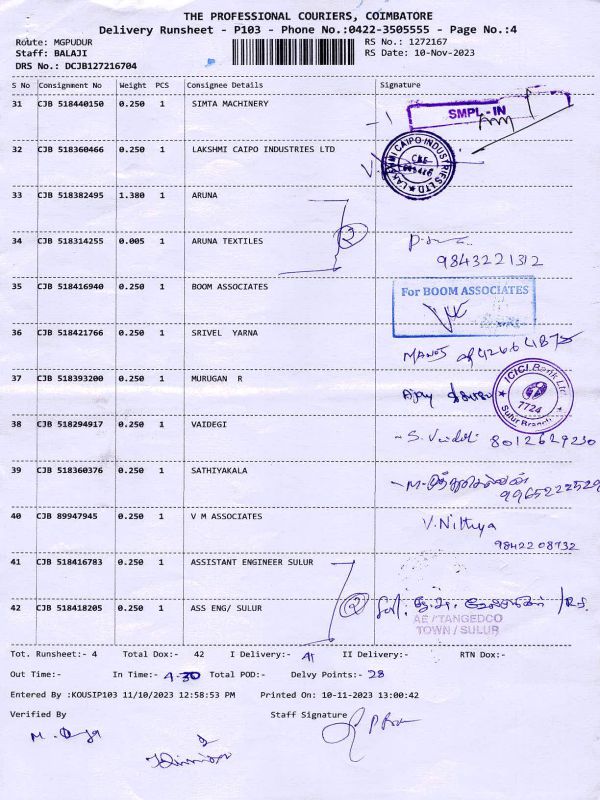 THE PROFESSIONAL COURIERS, COIMBATORE
Delivery Runsheet - P103 - Phone No.:0422-3505555 - Page No.:4
Route: MGPUDUR RS No.: 1272167
Staff: BALAJI RS Date: 10-Nov-2023
DRS No.: DCJB127216704
S No Consignment No Weight PCS Consignee Details Signature
31 CJB 518440150 0.250 1 SIMTA MACHINERY
SMPL-IN
32 CJB 518360466 0.250 1 LAKSHMI CAIPO INDUSTRIES LTD
LAKSHMI CAIPO INDUSTRIES LTD
33 CJB 518382495 1.380 1 ARUNA
2
34 CJB 518314255 0.005 1 ARUNA TEXTILES
9843221312
35 CJB 518416940 0.250 1 BOOM ASSOCIATES
For BOOM ASSOCIATES
36 CJB 518421766 0.250 1 SRIVEL YARNA
MANOJ
37 CJB 518393200 0.250 1 MURUGAN R
Ajay
ICICI Bank Ltd
7724
Sulur Branch
38 CJB 518294917 0.250 1 VAIDEGI
S. Vaidehi 8012629230
39 CJB 518360376 0.250 1 SATHIYAKALA
9965222529
40 CJB 89947945 0.250 1 V M ASSOCIATES
V. Nithya
9842208932
41 CJB 518416783 0.250 1 ASSISTANT ENGINEER SULUR
2
42 CJB 518418205 0.250 1 ASS ENG/ SULUR
AE / TANGEDCO
TOWN / SULUR
Tot. Runsheet:- 4 Total Dox:- 42 I Delivery:- 41 II Delivery:- RTN Dox:-
Out Time:- In Time:- 4-30 Total POD:- Delvy Points:- 28
Entered By :KOUSIP103 11/10/2023 12:58:53 PM Printed On: 10-11-2023 13:00:42
Verified By Staff Signature